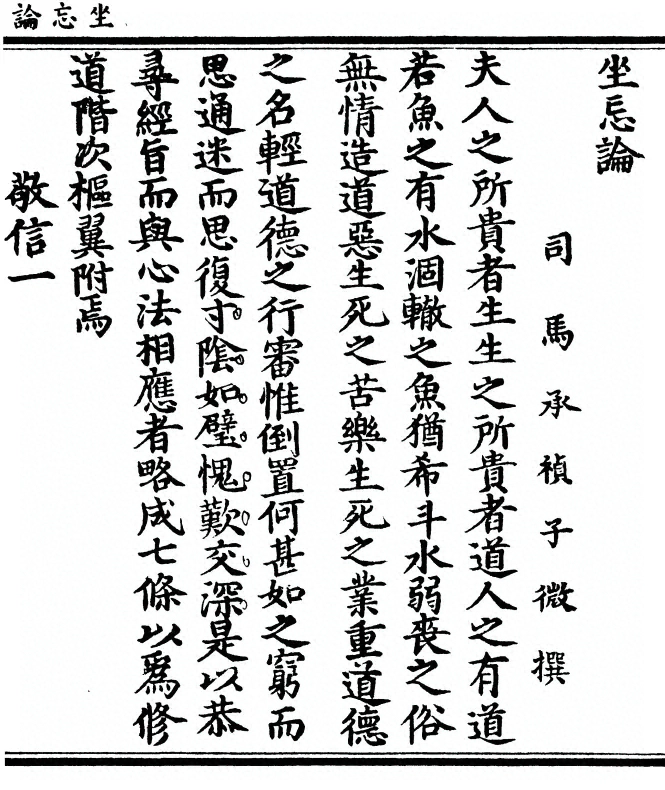 坐忘論
坐忘論
司馬承禎子微撰
夫人之所貴者生生之所貴者道人之有道
若魚之有水涸轍之魚猶希斗水弱喪之俗
無情造道惡生死之苦樂生死之業重道德
之名輕道德之行審惟倒置何甚如之窮而
思通迷而思復寸陰如璧愧歎交深是以恭
尋經旨而與心法相應者略成七條以爲修
道階次樞翼附焉
敬信一